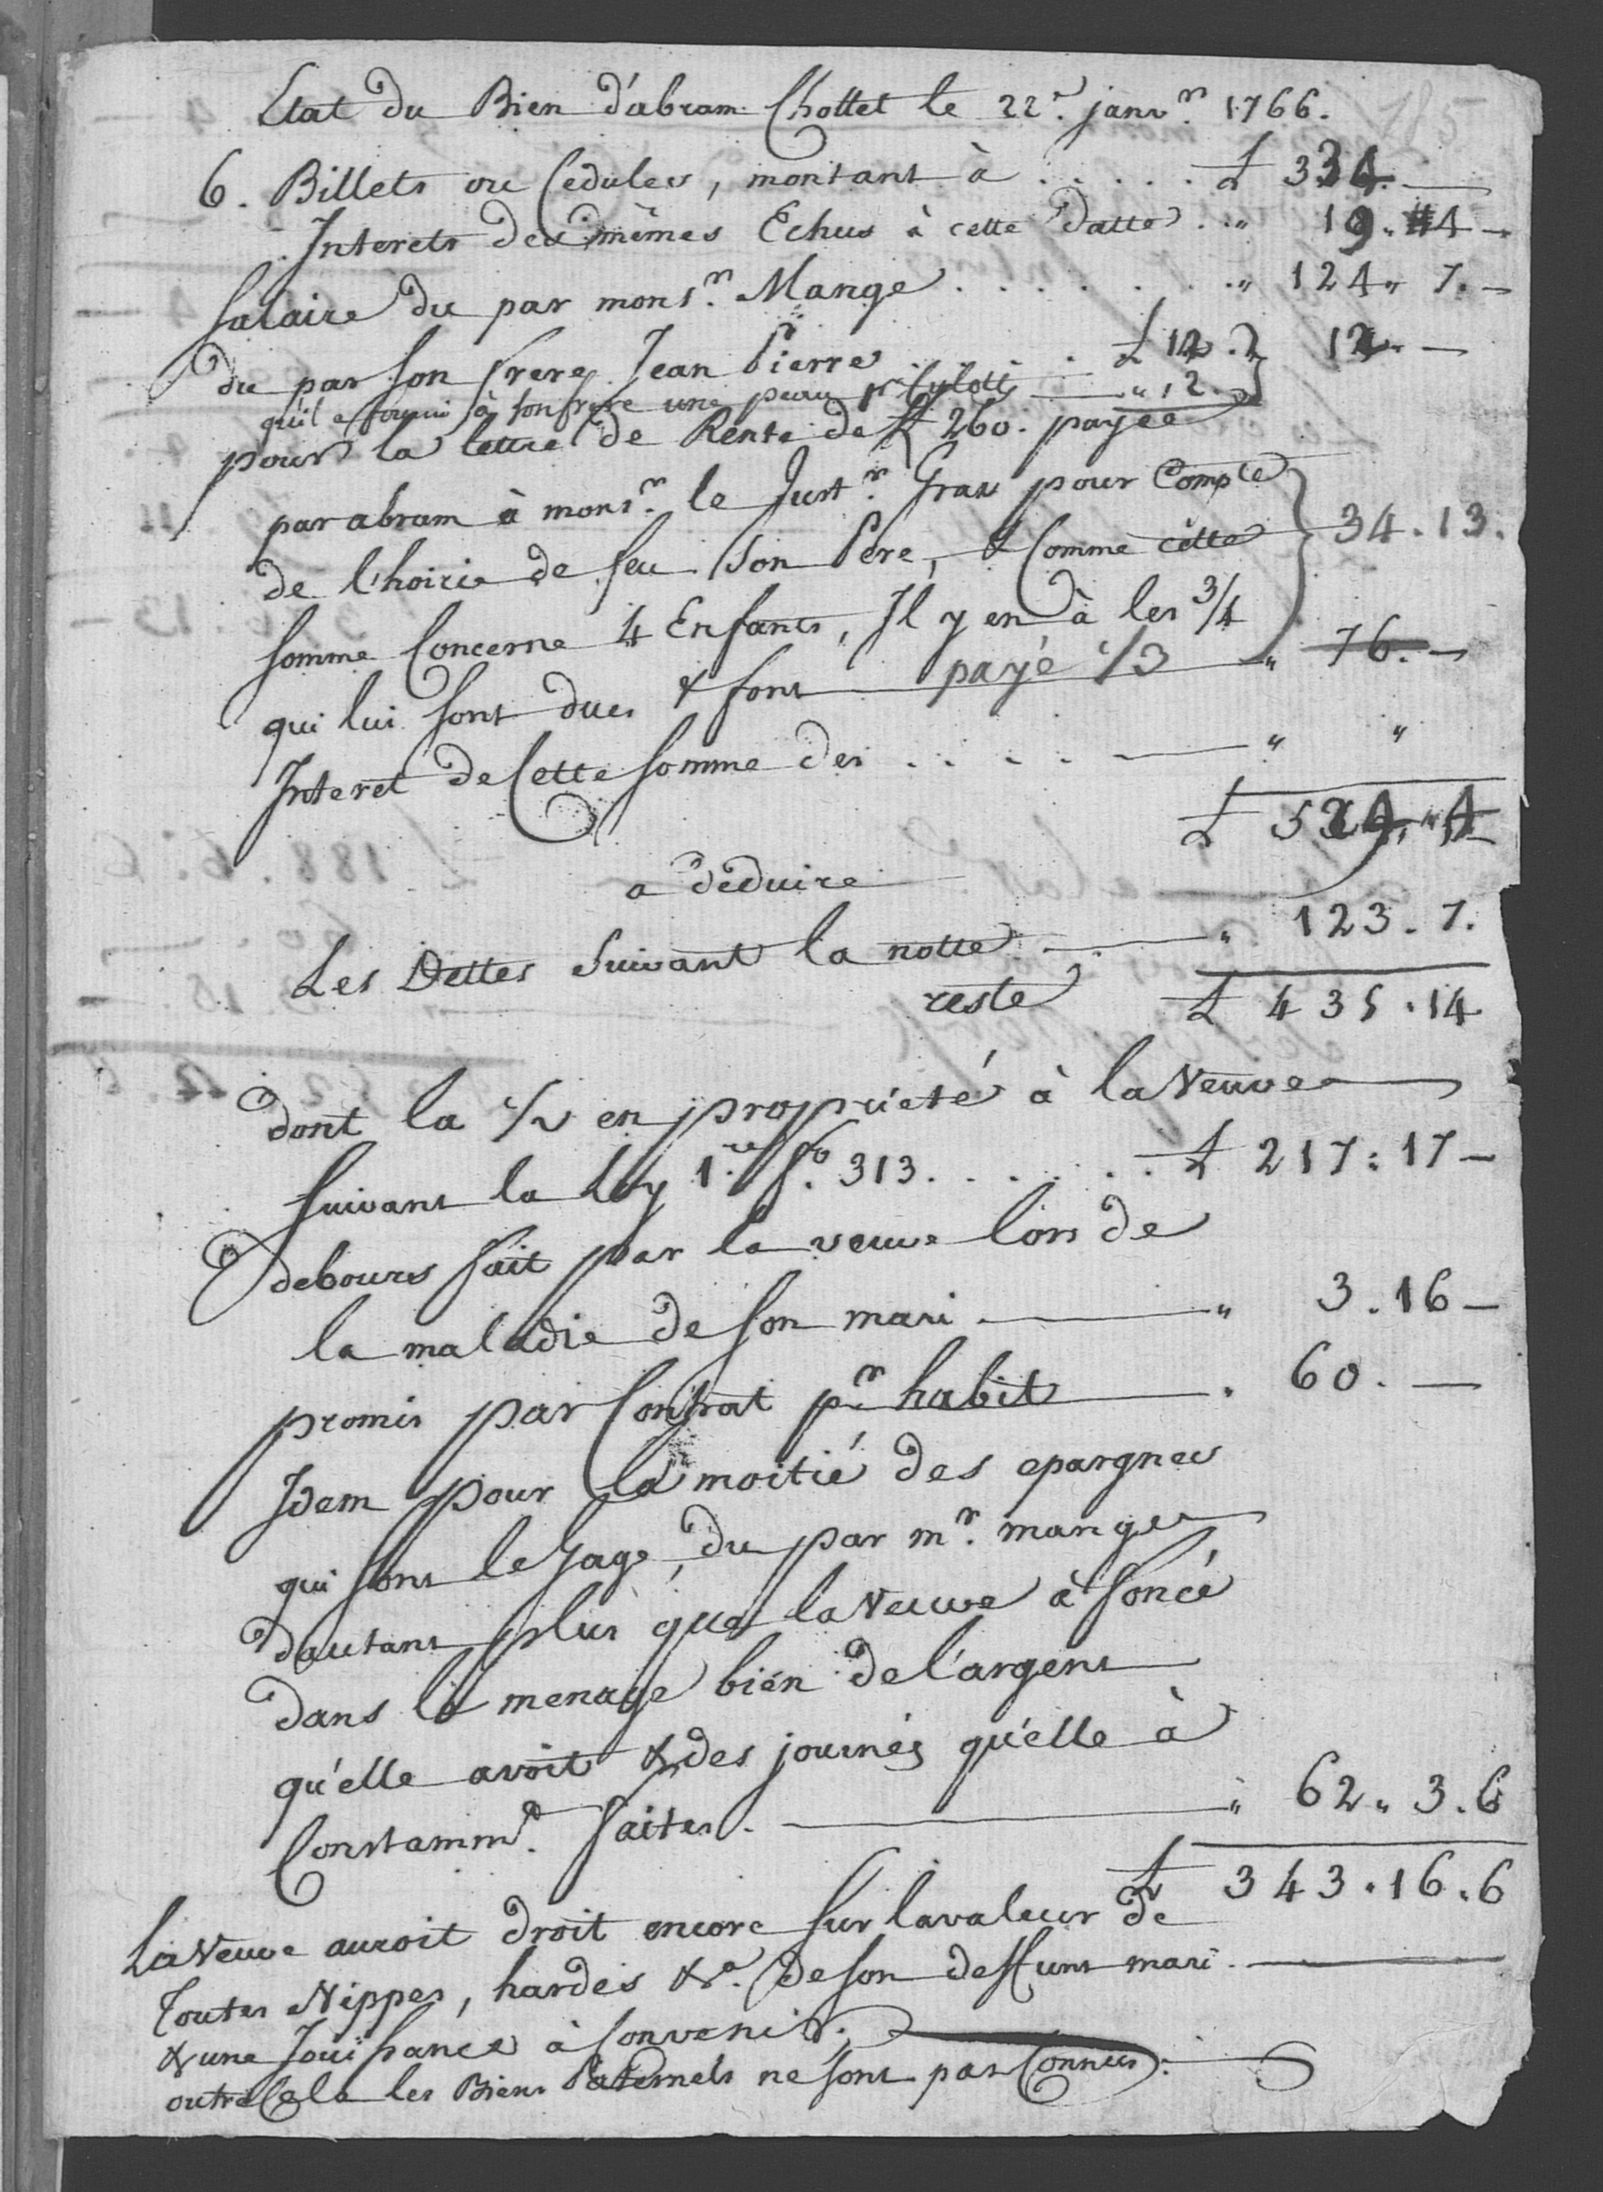 Etat du Bien d'abram Chollet le 22e. janvr. 1766.
6. Billets ou Cedules, montant à . . . . . £ 334. —
Interets des mêmes Echus à cette datte . . " 19. 4 —
Salaire du par monsr. Mange . . . . . . . " 124 " 7. —
du par son frere Jean Pierre . . . . . £ 12. 12. —
qu'il a fourni à son frere une peau pr. Culotte — " 12.
pour la lettre de Rente de £ 260. payée
par abram à monsr. le Justr. Grax pour Compte
de l'hoirie de feu son Pere, & Comme cette 34. 13.
somme Concerne 4 Enfants, Il y en à les 3/4
qui lui sont dues & font payé 1/3 — " 76. —
Interet de Cette somme des . . . . . — " "
£ 4
a déduire
Les Dettes suivant la notte . — " 123. 7.
reste £ 435. 14
dont la 1/2 en proprieté à la Veuve —
suivant la Loy 1re fo. 313. . . . . . £ 217: 17 —
debours fait par la veuve lors de
la maladie de son mari — " 3. 16 —
promis par Contrat pr. habit — " 60. —
Idem pour la moitié des epargnes
qui sont le gage, du par mr. mange
dautant plus que la Veuve à foncé
dans le menage bien de l'argent
qu'elle avoit & des journés qu'elle à
Constammt. faites. — " 62 " 3. 6
£ 343. 16. 6
La Veuve auroit droit encore sur la valeur de
Toutes Nippes, hardes &a. de son deffunt mari. —
& une Jouissance à Convenir. —
outre Cela les Biens Paternels ne sont pas Connus. —